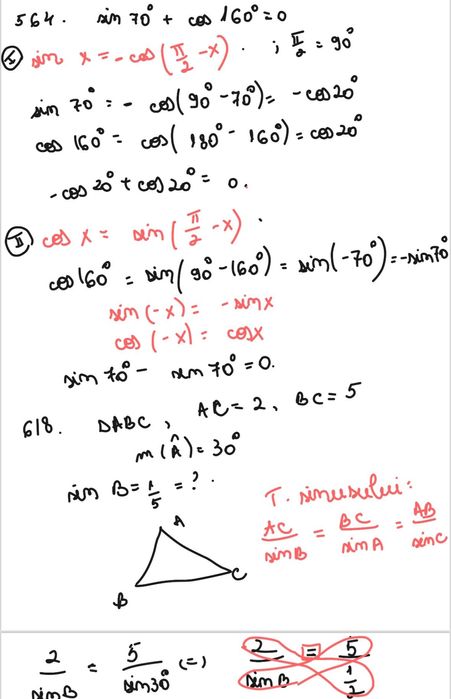 564. sin 70° + cos 160° = 0
(I) sin x = - cos (π/2 - x) . ; π/2 = 90°
sin 70° = - cos (90° - 70°) = - cos 20°
cos 160° = cos (180° - 160°) = cos 20°
- cos 20° + cos 20° = 0.
(II) cos x = sin (π/2 - x) .
cos 160° = sin (90° - 160°) = sin (-70°) = - sin 70°
sin (-x) = - sin x
cos (-x) = cos x
sin 70° - sin 70° = 0.
618. DABC, AC = 2, BC = 5
m(Â) = 30°
sin B = 1/5 = ?
T. sinusului:
AC/sin B = BC/sin A = AB/sin C
A
B
C
2/sin B = 5/sin 30° (=) 2/sin B = 5/(1/2)